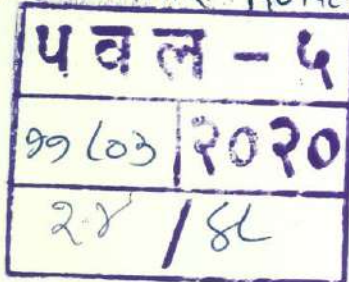 पवल - ५
११८०३ | २०२०
२४ / ४८